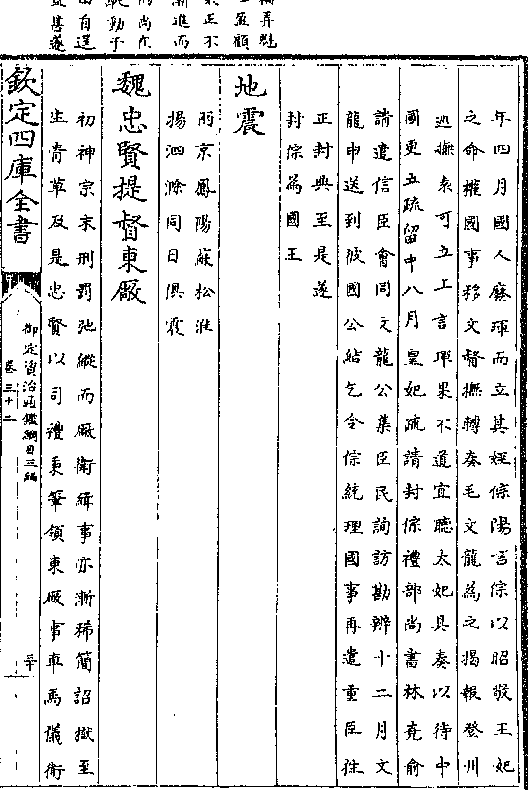 年四月國人廢琿而立其姪倧陽言倧以昭敬王妃
之命權國事移文督撫轉奏毛文龍為之揭報登州
廵撫袁可立上言琿果不道宜聽太妃具奏以待中
國更立疏留中八月王妃疏請封倧禮部尚書林堯俞
請遣信臣會同文龍公集臣民詢訪勘辨十二月文
龍申送到彼國公結乞令倧統理國事再遣重臣徃
正封典至是遂
封倧為國王
地震
兩京鳳陽蘇松淮
揚泗滁同日俱震
魏忠賢提督東厰
初神宗末刑罰弛縱而厰衛緝事亦漸稀簡詔獄至
生青草及是忠賢以司禮秉筆領東厰事車馬儀衛
欽定四庫全書
御定資治通鑑綱目三編
卷三十二